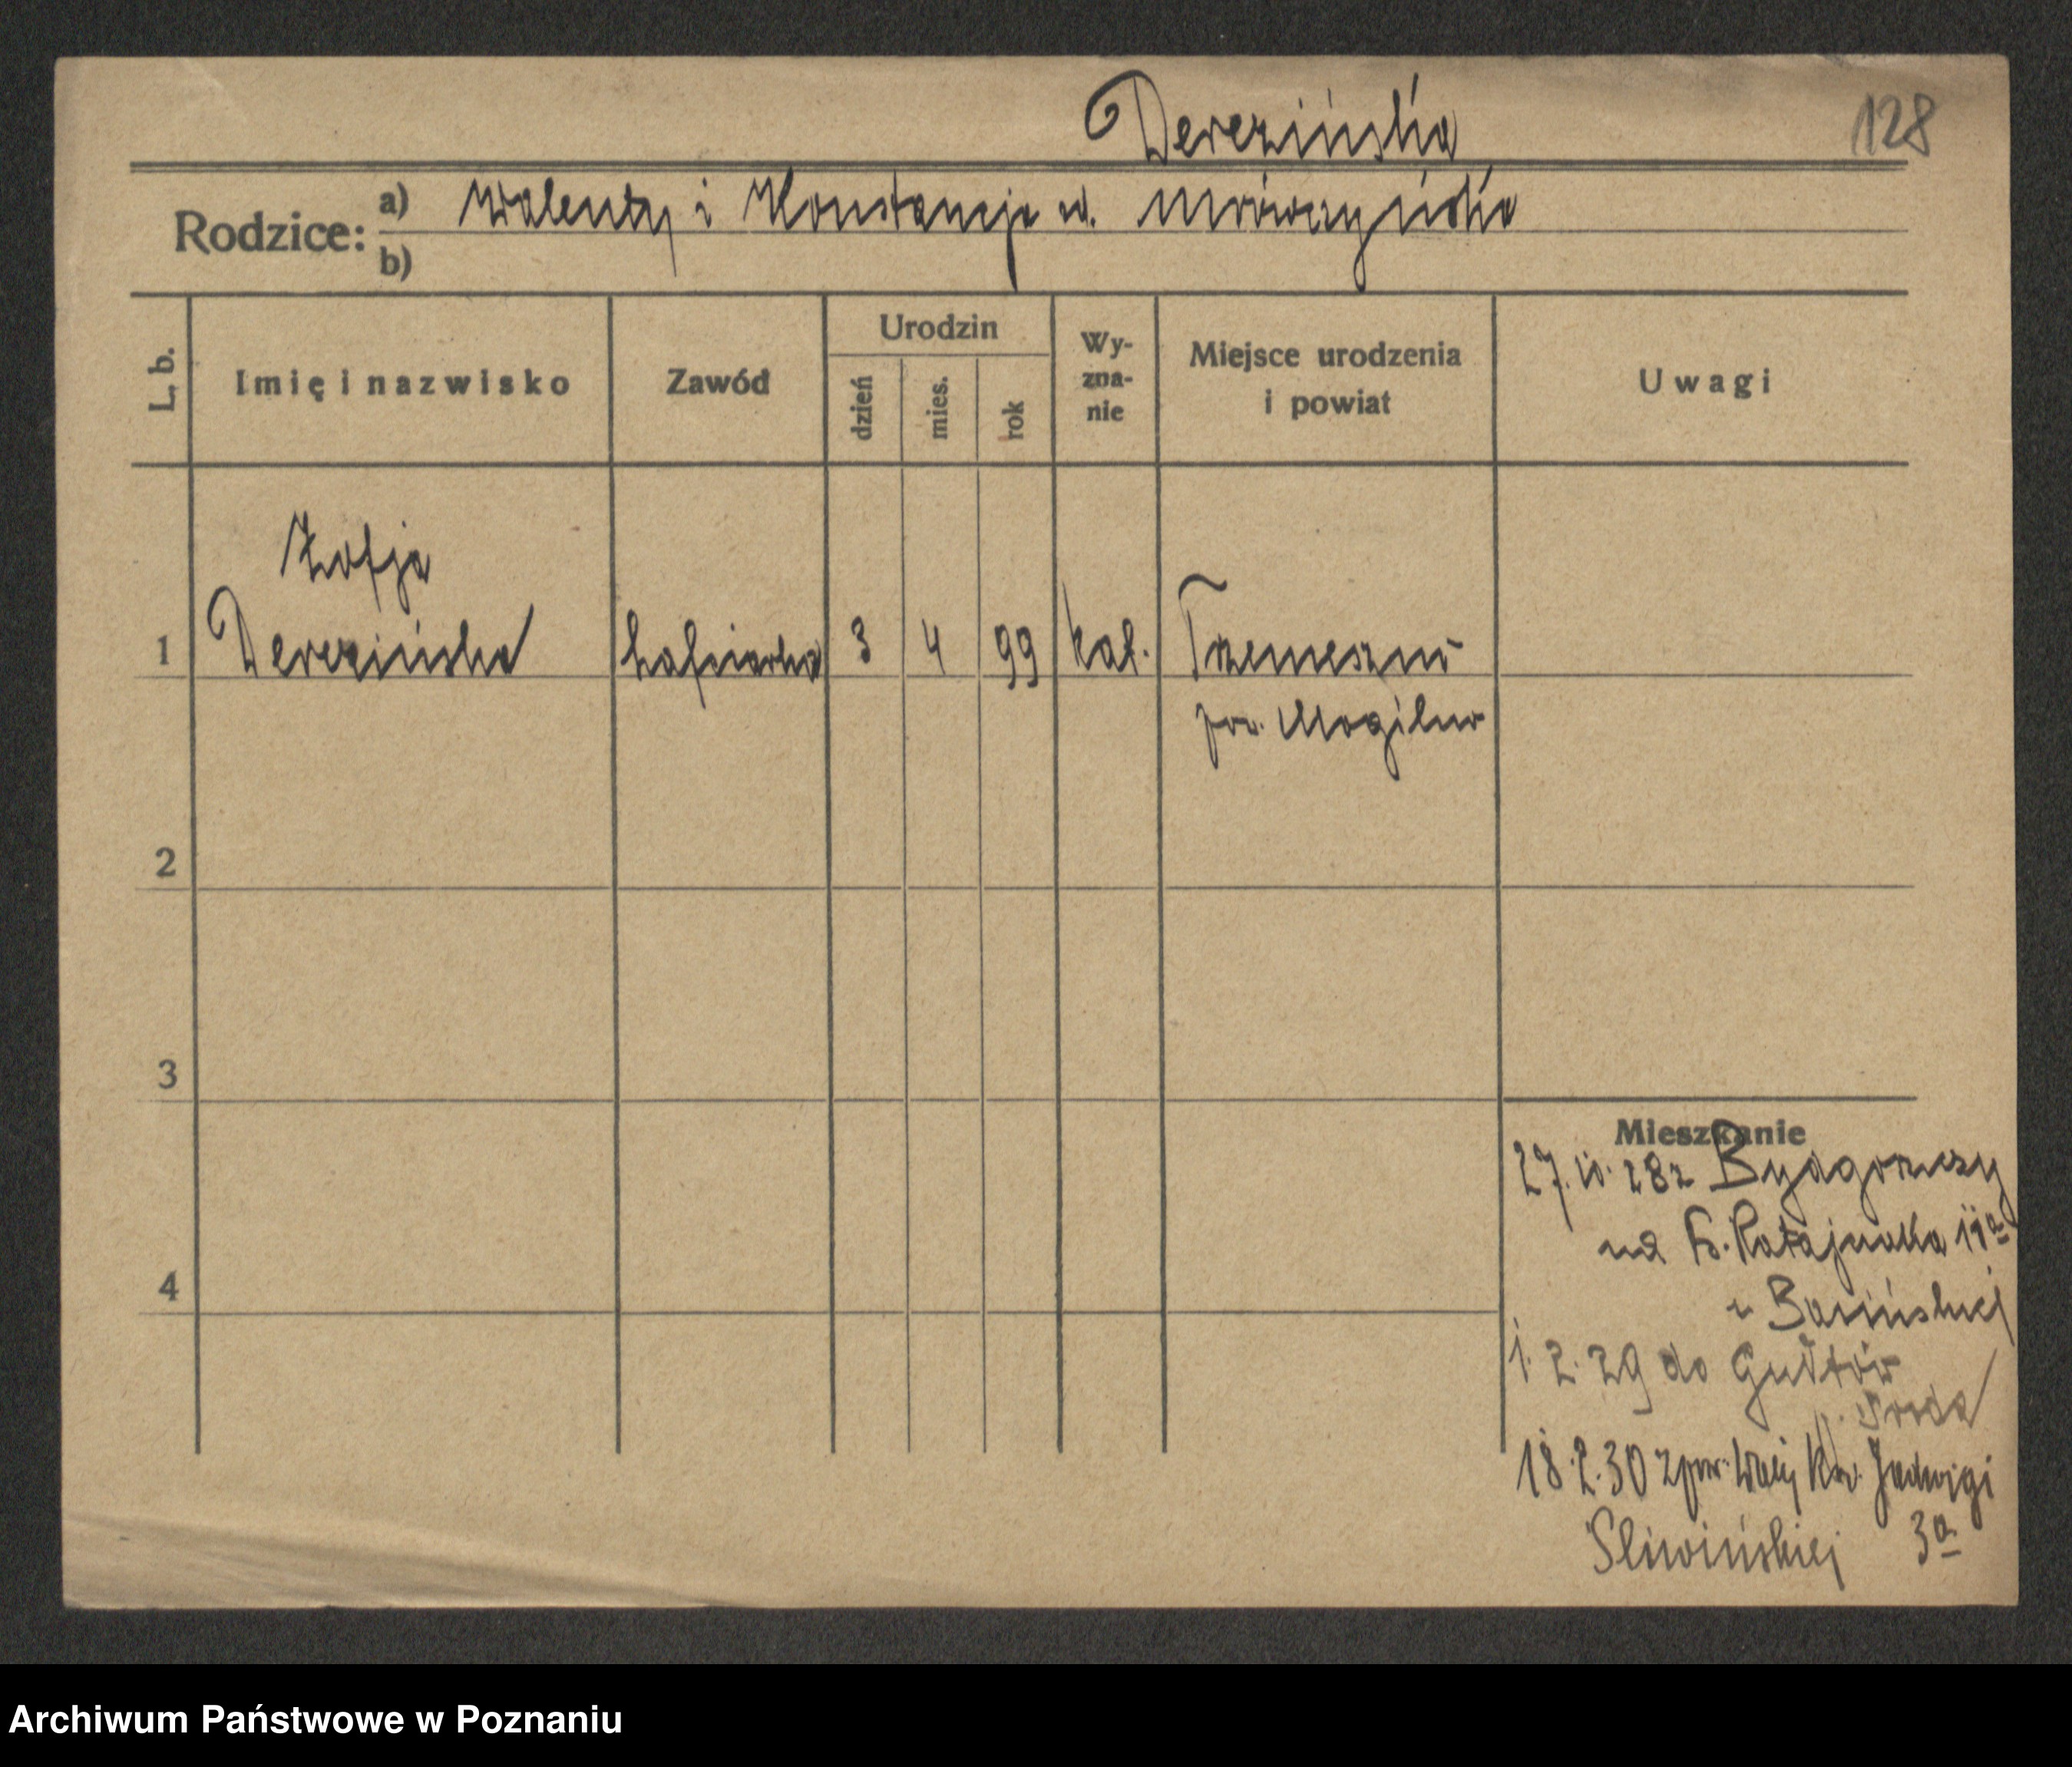 Derezińska
128
Rodzice:
a) Walenty i Konstancja d. Mrówczyńska
b)
L. b.
Imię i nazwisko
Zawód
Urodzin
dzień
mies.
rok
Wy-
zna-
nie
Miejsce urodzenia
i powiat
Uwagi
Zofja
1 Derezińska hafciarka 3 4 99 kat. Trzemeszno
pow. Mogilno
2
3
4
Mieszkanie
27.10.28 z Bydgoszczy
na Fr. Ratajczaka 11a
u Barińskiej
1.2.29 do Gułtów
p. Środa
18.2.30 z pow. Kr. Jadwigi
Śliwińskiej 3a
Archiwum Państwowe w Poznaniu